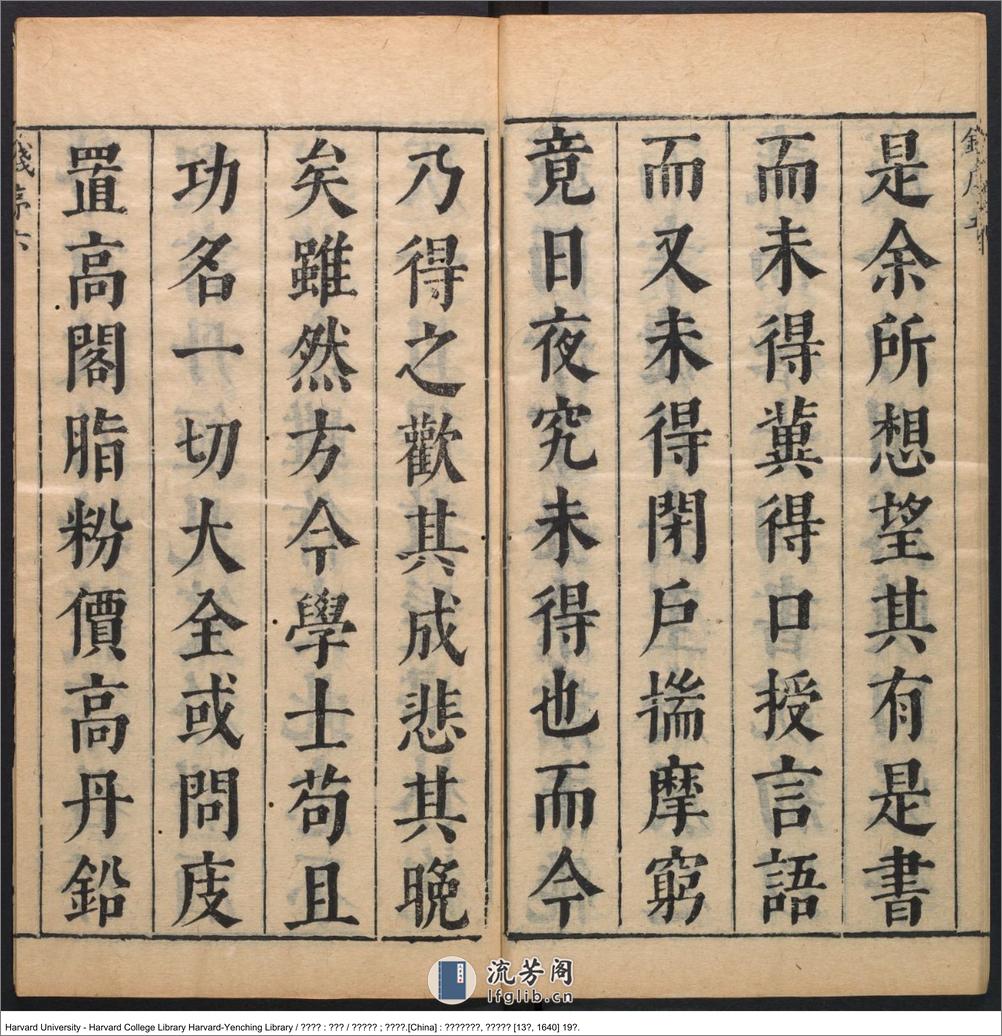 是余所想望其有是書
而未得冀得口授言語
而又未得閉戶揣摩窮
竟日夜究未得也而今
乃得之歡其成悲其晚
矣雖然方今學士苟且
功名一切大全或問庋
置高閣脂粉價高丹鉛
流芳阁
lfglib.cn
Harvard University - Harvard College Library Harvard-Yenching Library / ???? : ??? / ????? ; ????.[China] : ???????, ????? [13?, 1640] 19?.